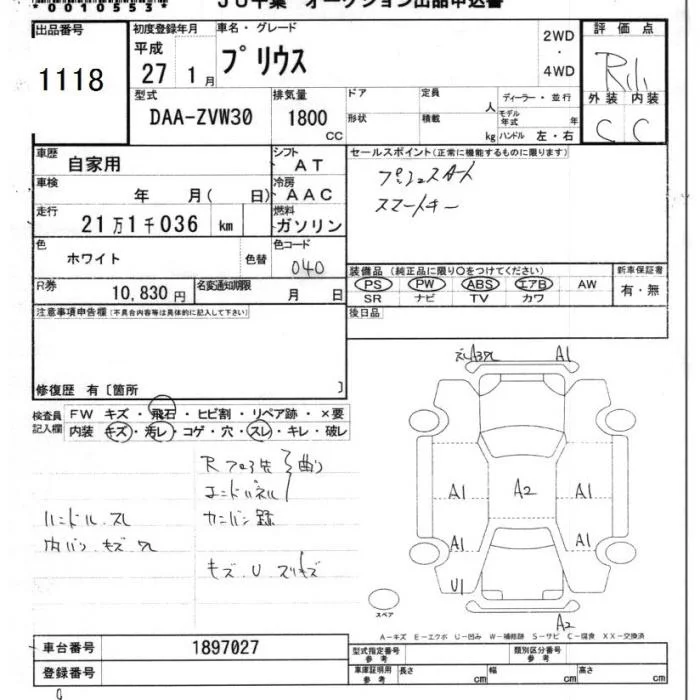 *0010553*
JU千葉 オークション出品申込書
出品番号
1118
初度登録年月
平成
27 1月
車名・グレード
プリウス
2WD
・
4WD
評価点
外装 内装
C C
型式
DAA-ZVW30
排気量
1800
CC
ドア
定員
人
形状
積載
kg
ディーラー・並行
モデル年式
年
ハンドル 左・右
車歴
自家用
シフト
AT
車検
年 月( 日)
冷房
AAC
走行
21万1千036 km
燃料
ガソリン
色
ホワイト
色替
色コード
040
R券
10,830円
名変通知期限
月 日
セールスポイント(正常に機能するものに限ります)
プッシュスタート
スマートキー
装備品(純正品に限り○をつけてください)
PS PW ABS エアB AW
SR ナビ TV カワ
新車保証書
有・無
後日品
注意事項申告欄(不具合内容等は具体的に記入して下さい)
修復歴 有〔箇所 〕
検査員記入欄
FW キズ・飛石・ヒビ割・リペア跡・×要
内装 キズ・汚レ・コゲ・穴・スレ・キレ・破レ
エンドパネル
曲り
ハンドル スレ
カンバン跡
内バン キズ
キズ U スリキズ
A1
A1 A2 A1
A1 A1
U1
A2
スペア
A-キズ E-エクボ U-凹み W-補修跡 S-サビ C-腐食 XX-交換済
車台番号
1897027
登録番号
型式指定番号
参考
類別区分番号
参考
車庫証明用
参考
長さ cm
幅 cm
高さ cm